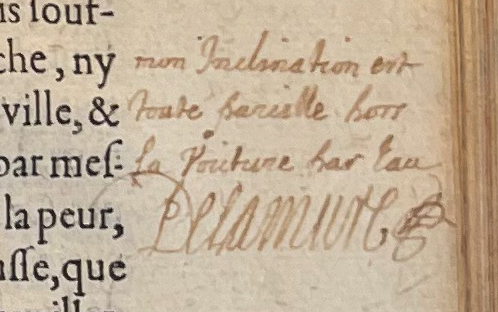 is souf-
che, ny
ville, &
par mes-
la peur,
usse, que
mon Inclination est
toute pareille hors
la Voiture par Eau
Delamure